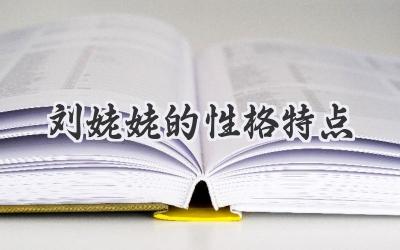 刘姥姥的性格特点